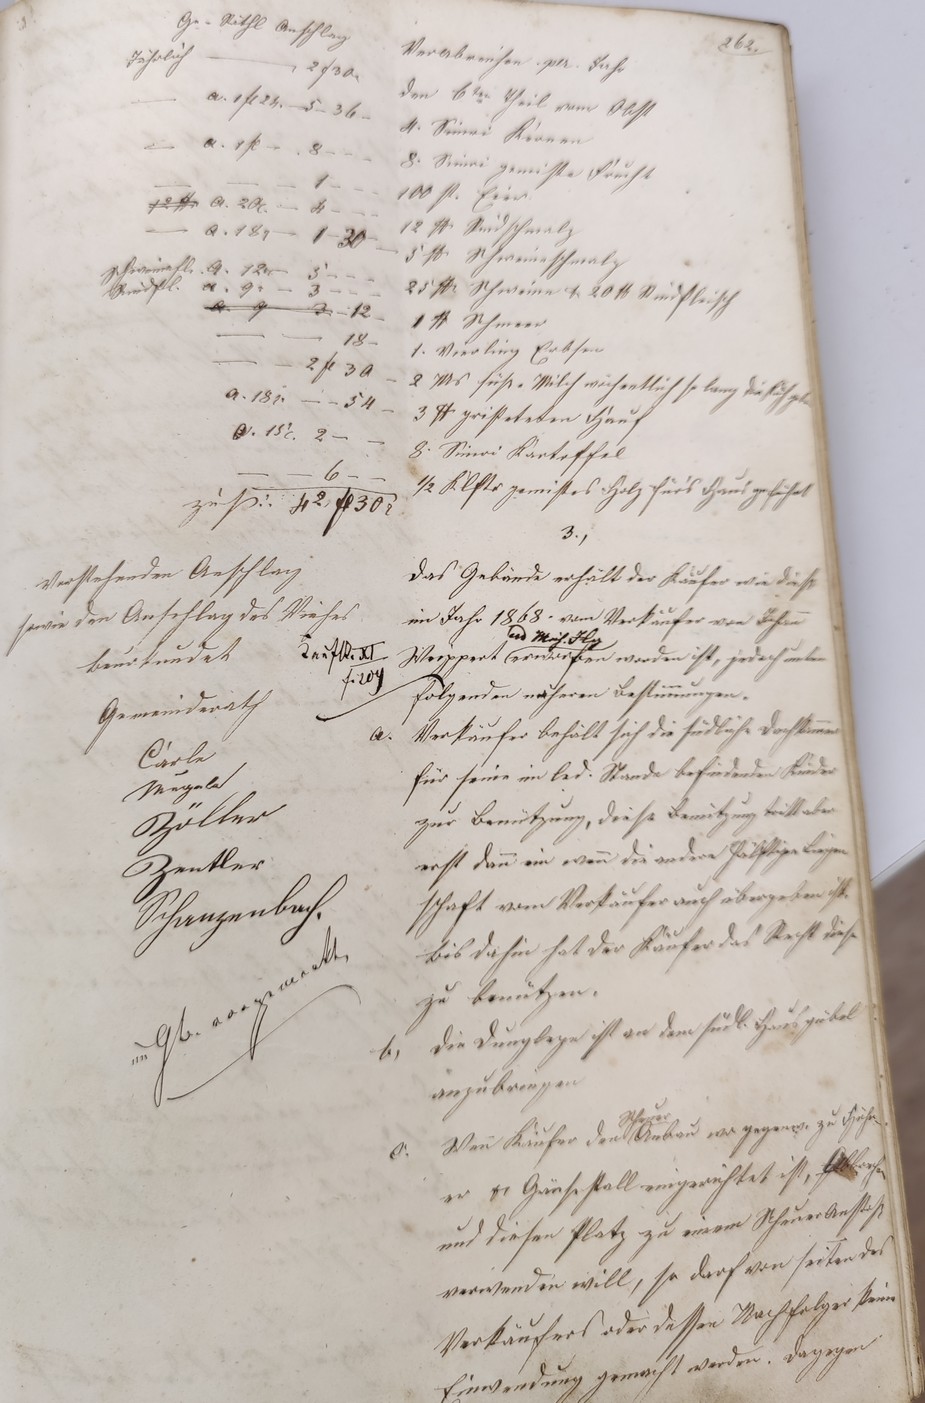 262.
Ge- Rithl Anschlag
Jährlich — 2 f 30.
a. 1 fl 24. — 5 — 36 —
a. 1 fl — . 8 — — —
1 — — —
12 ℔ a. 20. — 4 — — —
a. 18 — 1 — 30 —
Schweinefl. a. 12 — 5 — — —
Rindfl. a. 9 — 3 — — —
a. 9 3 — 12 —
18 —
2 fl 30 —
a. 18. — — 54 —
a. 15. 2 — —
6 — —
42 fl 30
Vorstehenden Anschlag
sowie den Anschlag des Viehes
beurkundet
Gemeinderath
Carle
Mugele
Zöller
Zentler
Schanzenbach.
im Gb. vorgemerkt,
Verabreichen pr. Jahr
den 6ten Theil vom Obst
4. Simri Kernen
8. Simri gemischte Frucht
100 st. Eier
12 ℔ Rindschmalz
5 ℔ Schweineschmalz
25 ℔ Schweine & 20 ℔ Rindfleisch
1 ℔ Schmeer
1. Vierling Erbsen
2 Ms süße Milch wöchentlich so lang die Kuh
3 ℔ Hanf
8. Simri Kartoffel
1/2 Klftr gemischtes Holz fürs Haus geführt
3.,
Das Gebäude erhält der Käufer wie dieß
im Jahr 1868. vom Verkäufer von Johann
und Mich. Ilg
Weippert erworben worden ist, jedoch unter
Kaufb. XI
f. 209
folgenden näheren Bestimmungen.
a. Verkäufer behält sich die südliche Dachkammer
für seine im led. Stande befindenden Kinder
zur Benützung, diese Benützung tritt aber
erst dann ein wenn die andere hälftige Liegen
schaft vom Verkäufer auch übergeben ist.
bis dahin hat der Käufer das Recht diese
zu benützen.
b, Die Dunglege ist an dem südl. Hausgiebel
anzubringen
c. Wenn Käufer den Scheuer Anbau wo gegenw. zu Hühn-
er & Gänsestall eingerichtet ist, abbrechen
und diesen Platz zu einem Scheueranstoß
verwenden will, so darf von seiten des
Verkäufers oder dessen Nachfolger keine
Einwendung gemacht werden. Dagegen